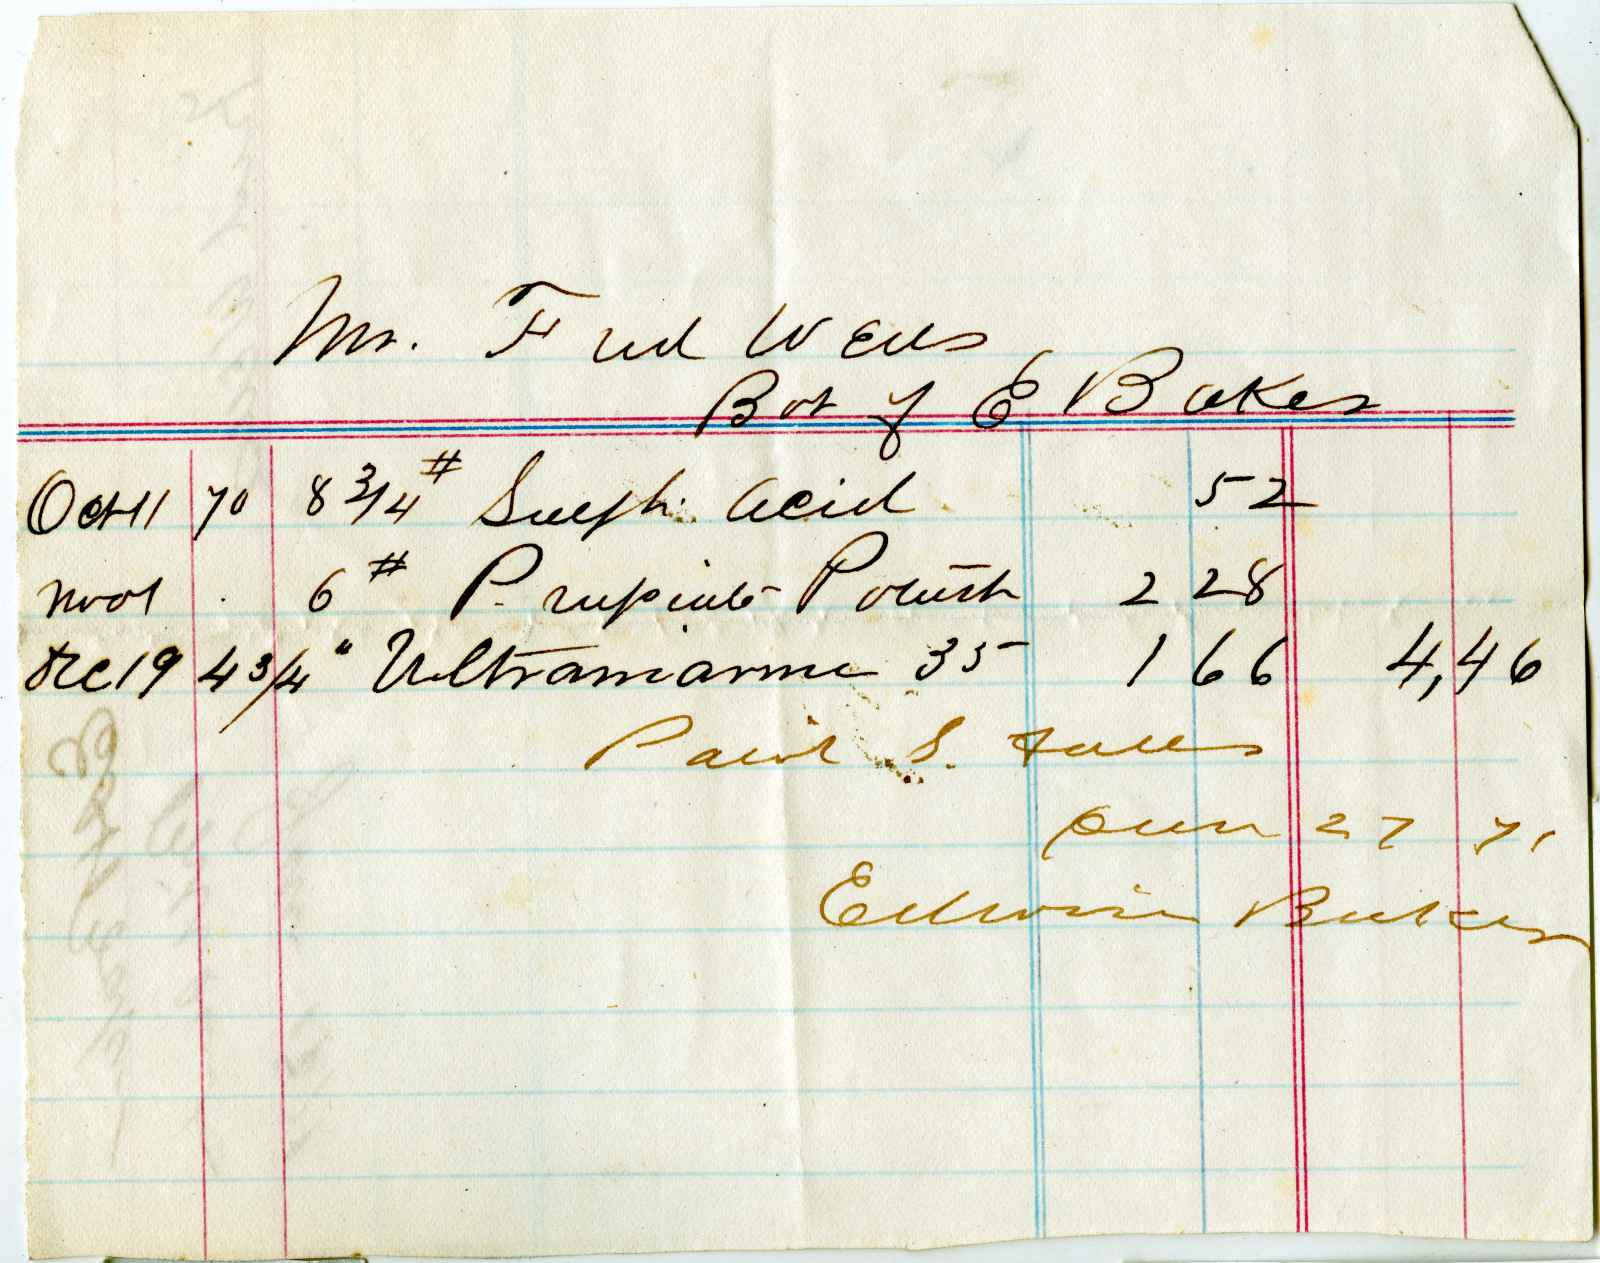 Mr. Fred Wells
Bot of E Baker
Oct 11 70 8 3/4 # Sulph. Acid 52
Nov 01 . 6 # P. rupiate Potash 2 28
Dec 19 4 3/4 " Ultramarine 35 1 66 4,46
Paid S. Falls
Jun 27 71
Edwin Baker